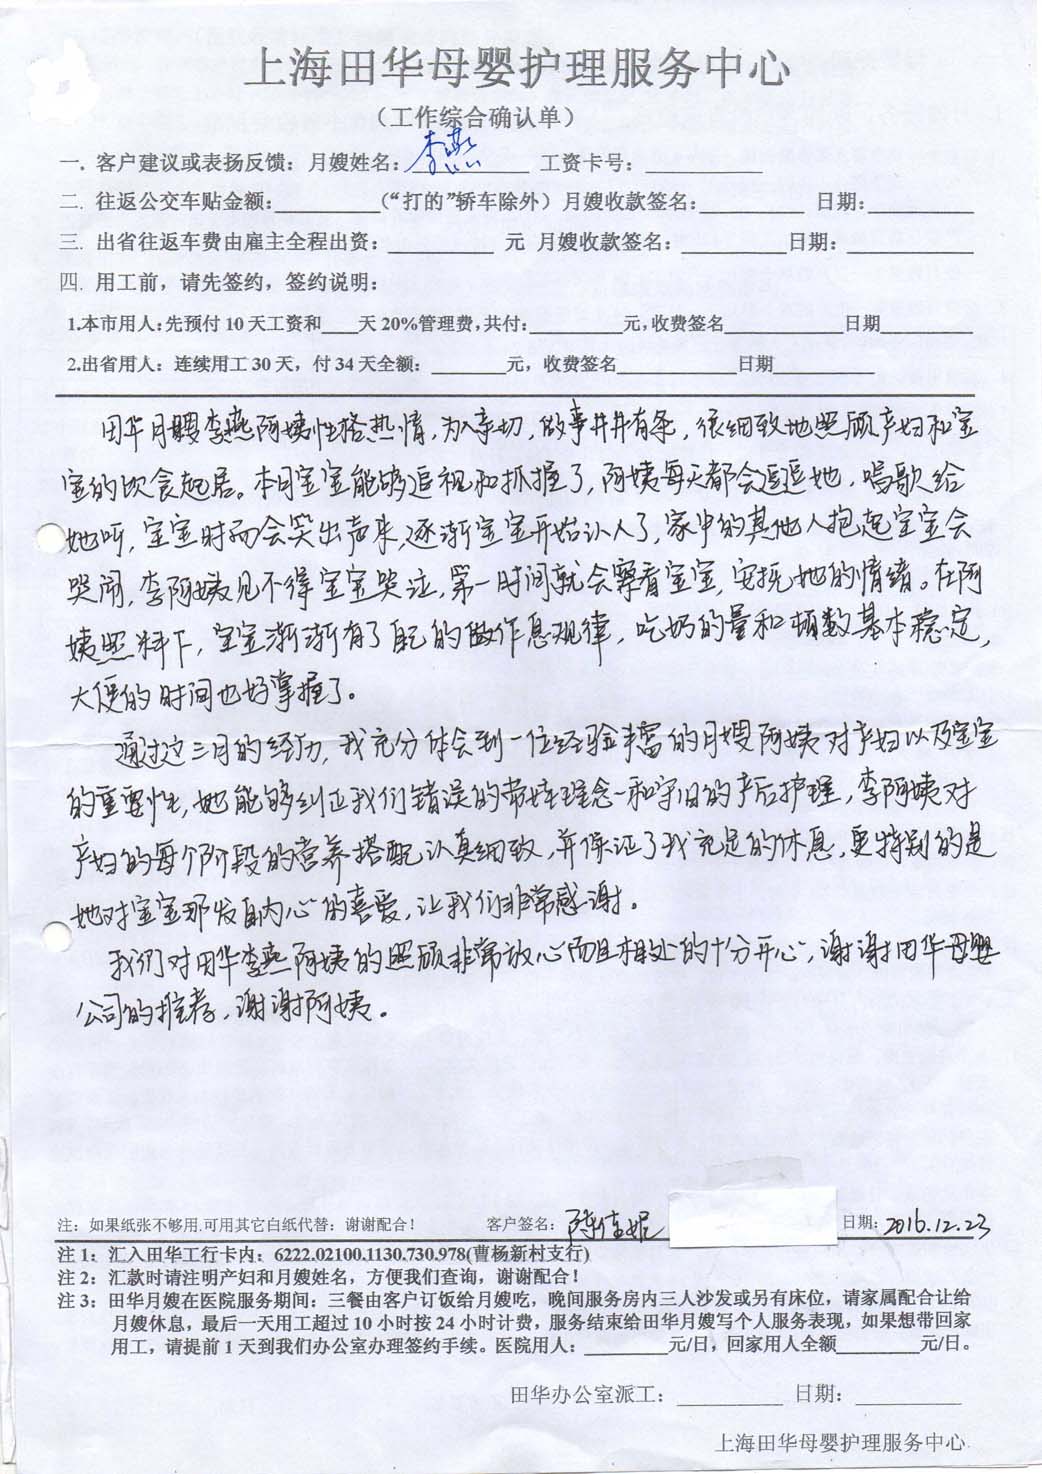 上海田华母婴护理服务中心
（工作综合确认单）
一. 客户建议或表扬反馈：月嫂姓名：李燕 工资卡号：
二. 往返公交车贴金额：（“打的”轿车除外）月嫂收款签名： 日期：
三. 出省往返车费由雇主全程出资： 元 月嫂收款签名： 日期：
四. 用工前，请先签约，签约说明：
1.本市用人：先预付10天工资和 天20%管理费，共付： 元，收费签名 日期
2.出省用人：连续用工30天，付34天全额： 元，收费签名 日期
田华月嫂李燕阿姨性格热情，为人亲切，做事井井有条，很细致地照顾产妇和宝
宝的饮食起居。本月宝宝能够追视和抓握了，阿姨每天都会逗逗她，唱歌给
她听，宝宝时而会笑出声来，逐渐宝宝开始认人了，家中的其他人抱起宝宝会
哭闹，李阿姨见不得宝宝哭泣，第一时间就会来看宝宝，安抚她的情绪。在阿
姨照料下，宝宝渐渐有了自己的做作息规律，吃奶的量和顿数基本稳定，
大便的时间也好掌握了。
通过这三月的经历，我充分体会到一位经验丰富的月嫂阿姨对产妇以及宝宝
的重要性，她能够纠正我们错误的带娃理念和守旧的产后护理，李阿姨对
产妇的每个阶段的营养搭配认真细致，并保证了我充足的休息，更特别的是
她对宝宝那发自内心的喜爱，让我们非常感谢。
我们对田华李燕阿姨的照顾非常放心而且相处的十分开心，谢谢田华母婴
公司的推荐，谢谢阿姨。
注：如果纸张不够用.可用其它白纸代替：谢谢配合！ 客户签名：陈佳妮 日期：2016.12.23
注1：汇入田华工行卡内：6222.02100.1130.730.978(曹杨新村支行)
注2：汇款时请注明产妇和月嫂姓名，方便我们查询，谢谢配合！
注3：田华月嫂在医院服务期间：三餐由客户订饭给月嫂吃，晚间服务房内三人沙发或另有床位，请家属配合让给
月嫂休息，最后一天用工超过10小时按24小时计费，服务结束给田华月嫂写个人服务表现，如果想带回家
用工，请提前1天到我们办公室办理签约手续。医院用人： 元/日，回家用人全额 元/日。
田华办公室派工： 日期：
上海田华母婴护理服务中心.